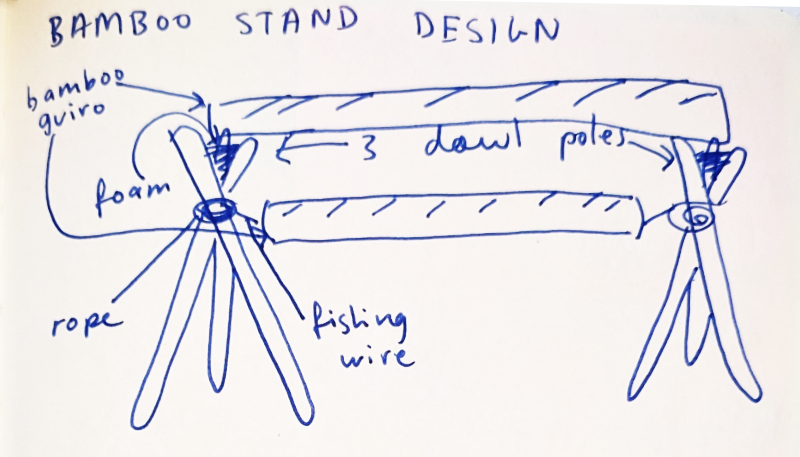 BAMBOO STAND DESIGN
bamboo
guiro
3 dowl poles
foam
rope
fishing
wire